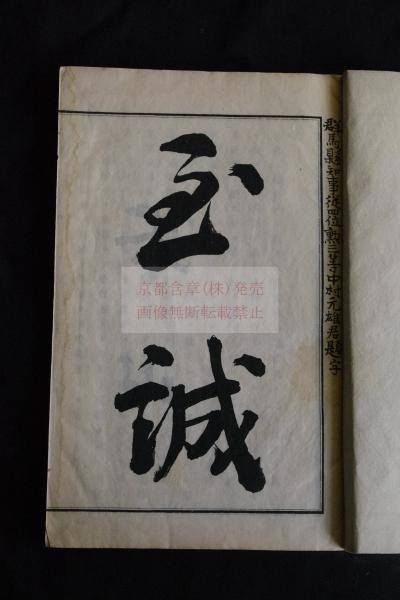 群馬縣知事從四位勲三等中村元雄君題字
至誠
京都含章(株)発売
画像無断転載禁止